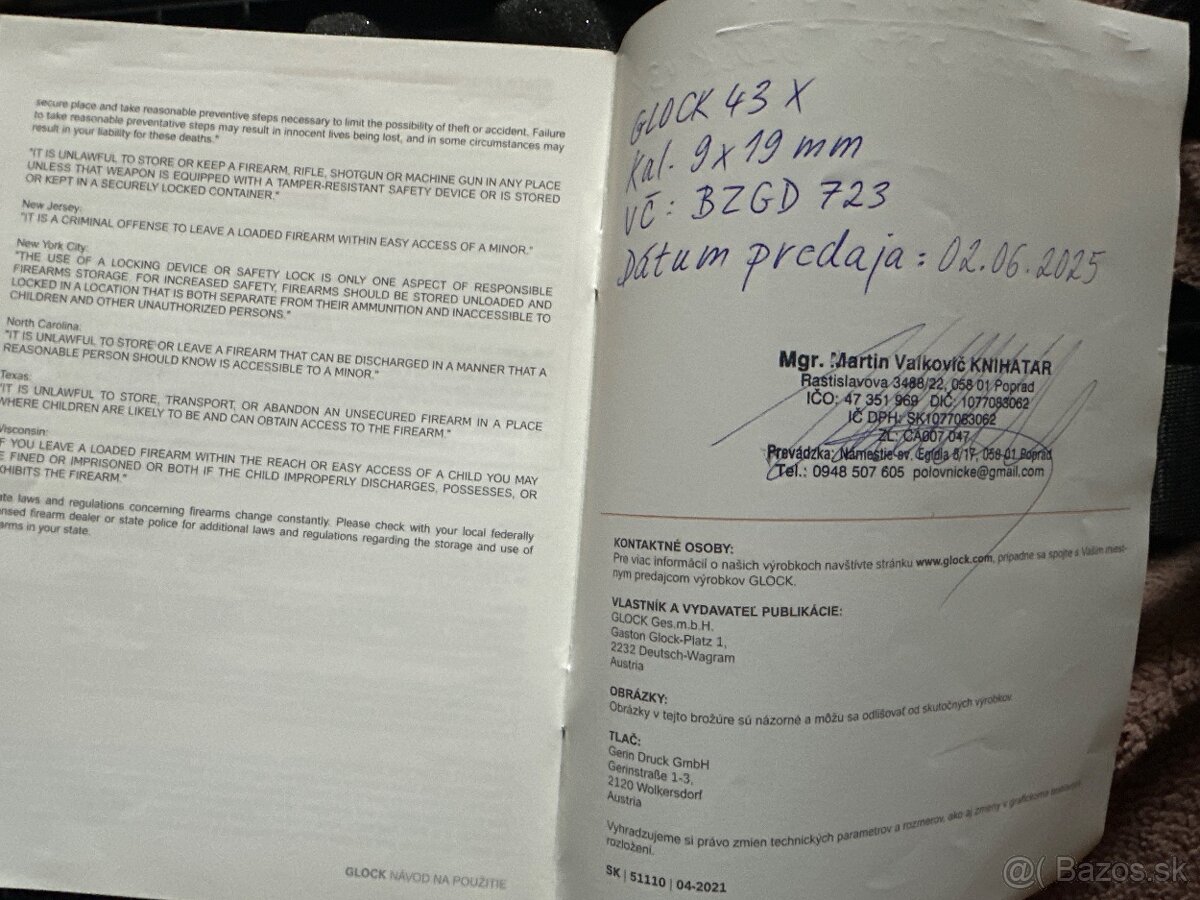 secure place and take reasonable preventive steps necessary to limit the possibility of theft or accident. Failure
to take reasonable preventative steps may result in innocent lives being lost, and in some circumstances may
result in your liability for these deaths."
"IT IS UNLAWFUL TO STORE OR KEEP A FIREARM, RIFLE, SHOTGUN OR MACHINE GUN IN ANY PLACE
UNLESS THAT WEAPON IS EQUIPPED WITH A TAMPER-RESISTANT SAFETY DEVICE OR IS STORED
OR KEPT IN A SECURELY LOCKED CONTAINER."
New Jersey:
"IT IS A CRIMINAL OFFENSE TO LEAVE A LOADED FIREARM WITHIN EASY ACCESS OF A MINOR."
New York City:
"THE USE OF A LOCKING DEVICE OR SAFETY LOCK IS ONLY ONE ASPECT OF RESPONSIBLE
FIREARMS STORAGE. FOR INCREASED SAFETY, FIREARMS SHOULD BE STORED UNLOADED AND
LOCKED IN A LOCATION THAT IS BOTH SEPARATE FROM THEIR AMMUNITION AND INACCESSIBLE TO
CHILDREN AND OTHER UNAUTHORIZED PERSONS."
North Carolina:
"IT IS UNLAWFUL TO STORE OR LEAVE A FIREARM THAT CAN BE DISCHARGED IN A MANNER THAT A
REASONABLE PERSON SHOULD KNOW IS ACCESSIBLE TO A MINOR."
Texas:
"IT IS UNLAWFUL TO STORE, TRANSPORT, OR ABANDON AN UNSECURED FIREARM IN A PLACE
WHERE CHILDREN ARE LIKELY TO BE AND CAN OBTAIN ACCESS TO THE FIREARM."
Wisconsin:
F YOU LEAVE A LOADED FIREARM WITHIN THE REACH OR EASY ACCESS OF A CHILD YOU MAY
E FINED OR IMPRISONED OR BOTH IF THE CHILD IMPROPERLY DISCHARGES, POSSESSES, OR
XHIBITS THE FIREARM."
ate laws and regulations concerning firearms change constantly. Please check with your local federally
ensed firearm dealer or state police for additional laws and regulations regarding the storage and use of
arms in your state.
GLOCK NÁVOD NA POUŽITIE
GLOCK 43 X
Kal. 9x19 mm
VČ: BZGD 723
Dátum predaja: 02.06.2025
Mgr. Martin Valkovič KNIHATAR
Rastislavova 3488/22, 058 01 Poprad
IČO: 47 351 969 DIČ: 1077083062
IČ DPH: SK1077083062
ZL: CA007 047
Prevádzka: Námestie sv. Egídia 8/17, 058 01 Poprad
Tel.: 0948 507 605 polovnicke@gmail.com
KONTAKTNÉ OSOBY:
Pre viac informácií o našich výrobkoch navštívte stránku www.glock.com, prípadne sa spojte s Vašim miest-
nym predajcom výrobkov GLOCK.
VLASTNÍK A VYDAVATEĽ PUBLIKÁCIE:
GLOCK Ges.m.b.H.
Gaston Glock-Platz 1,
2232 Deutsch-Wagram
Austria
OBRÁZKY:
Obrázky v tejto brožúre sú názorné a môžu sa odlišovať od skutočných výrobkov.
TLAČ:
Gerin Druck GmbH
Gerinstraße 1-3,
2120 Wolkersdorf
Austria
Vyhradzujeme si právo zmien technických parametrov a rozmerov, ako aj zmeny v grafickom
rozložení.
SK | 51110 | 04-2021
@( Bazos.sk